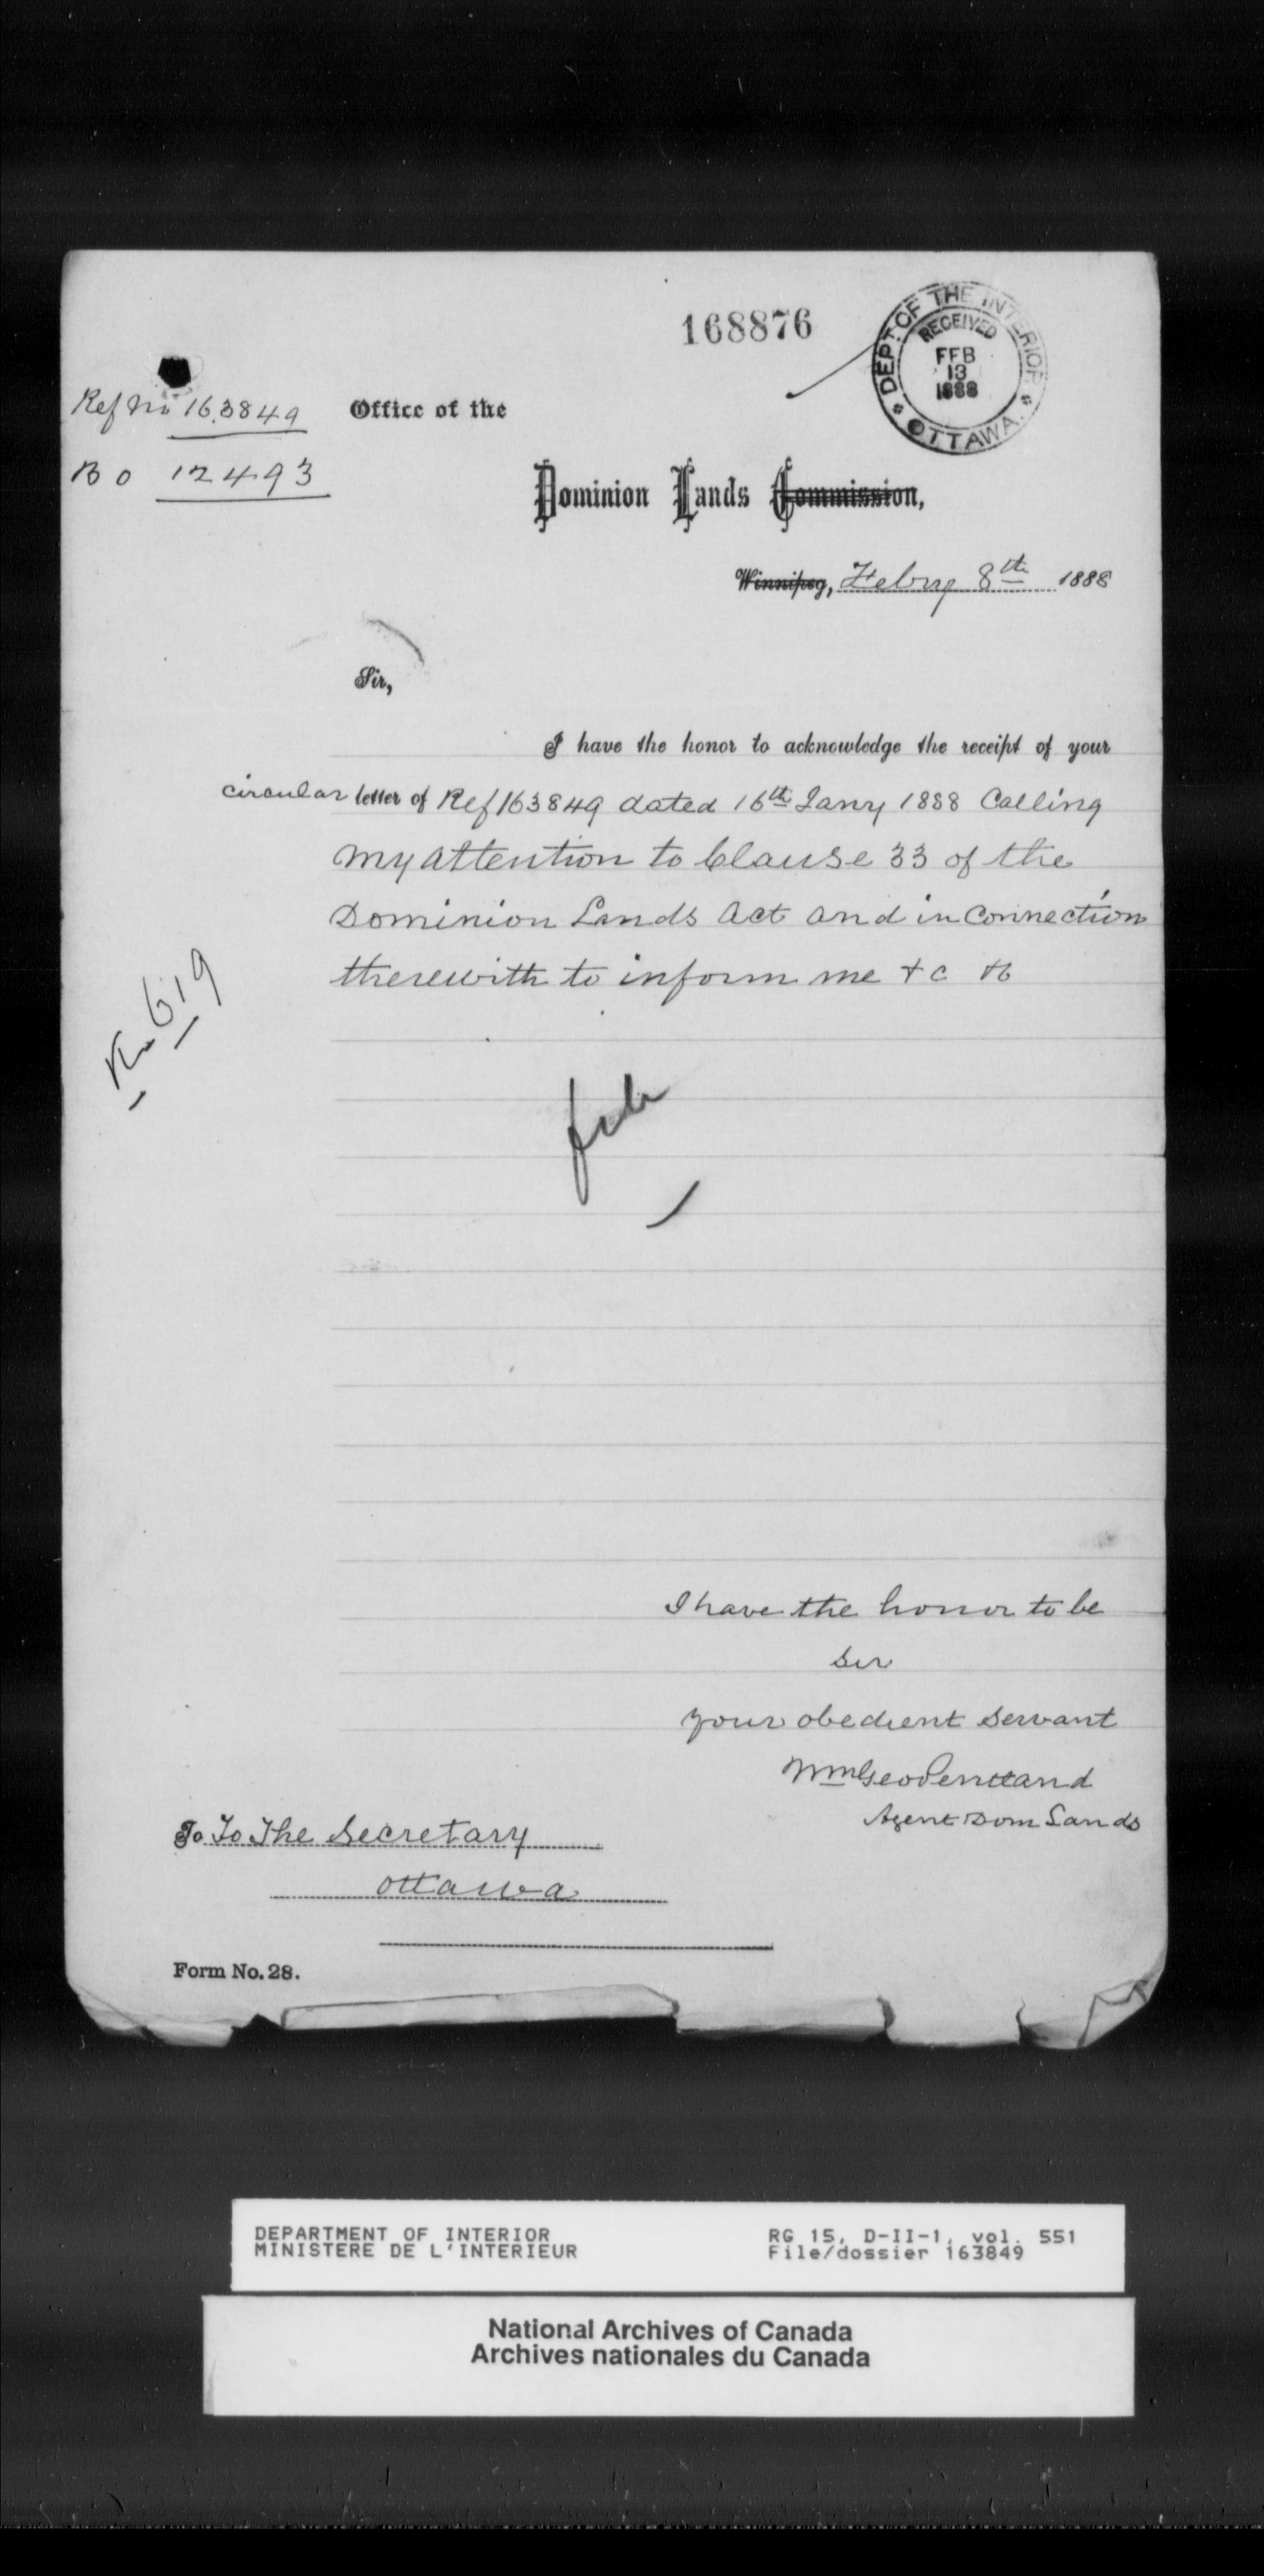 168876
DEPT. OF THE INTERIOR
RECEIVED
FEB
13
1888
OTTAWA.
Ref No 163849
Office of the
B O 12493
Dominion Lands Commission,
Winnipeg, Febry 8th 1888
Sir,
I have the honor to acknowledge the receipt of your
circular letter of Ref 163849 dated 16th Jany 1888 Calling
my attention to Clause 33 of the
Dominion Lands Act and in Connection
therewith to inform me &c &c
619
I have the honor to be
Sir
your obedient servant
Wm Geo Pentland
Agent Dom Lands
To To The Secretary
Ottawa
Form No. 28.
DEPARTMENT OF INTERIOR
MINISTERE DE L'INTERIEUR
RG 15, D-II-1, vol. 551
File/dossier 163849
National Archives of Canada
Archives nationales du Canada